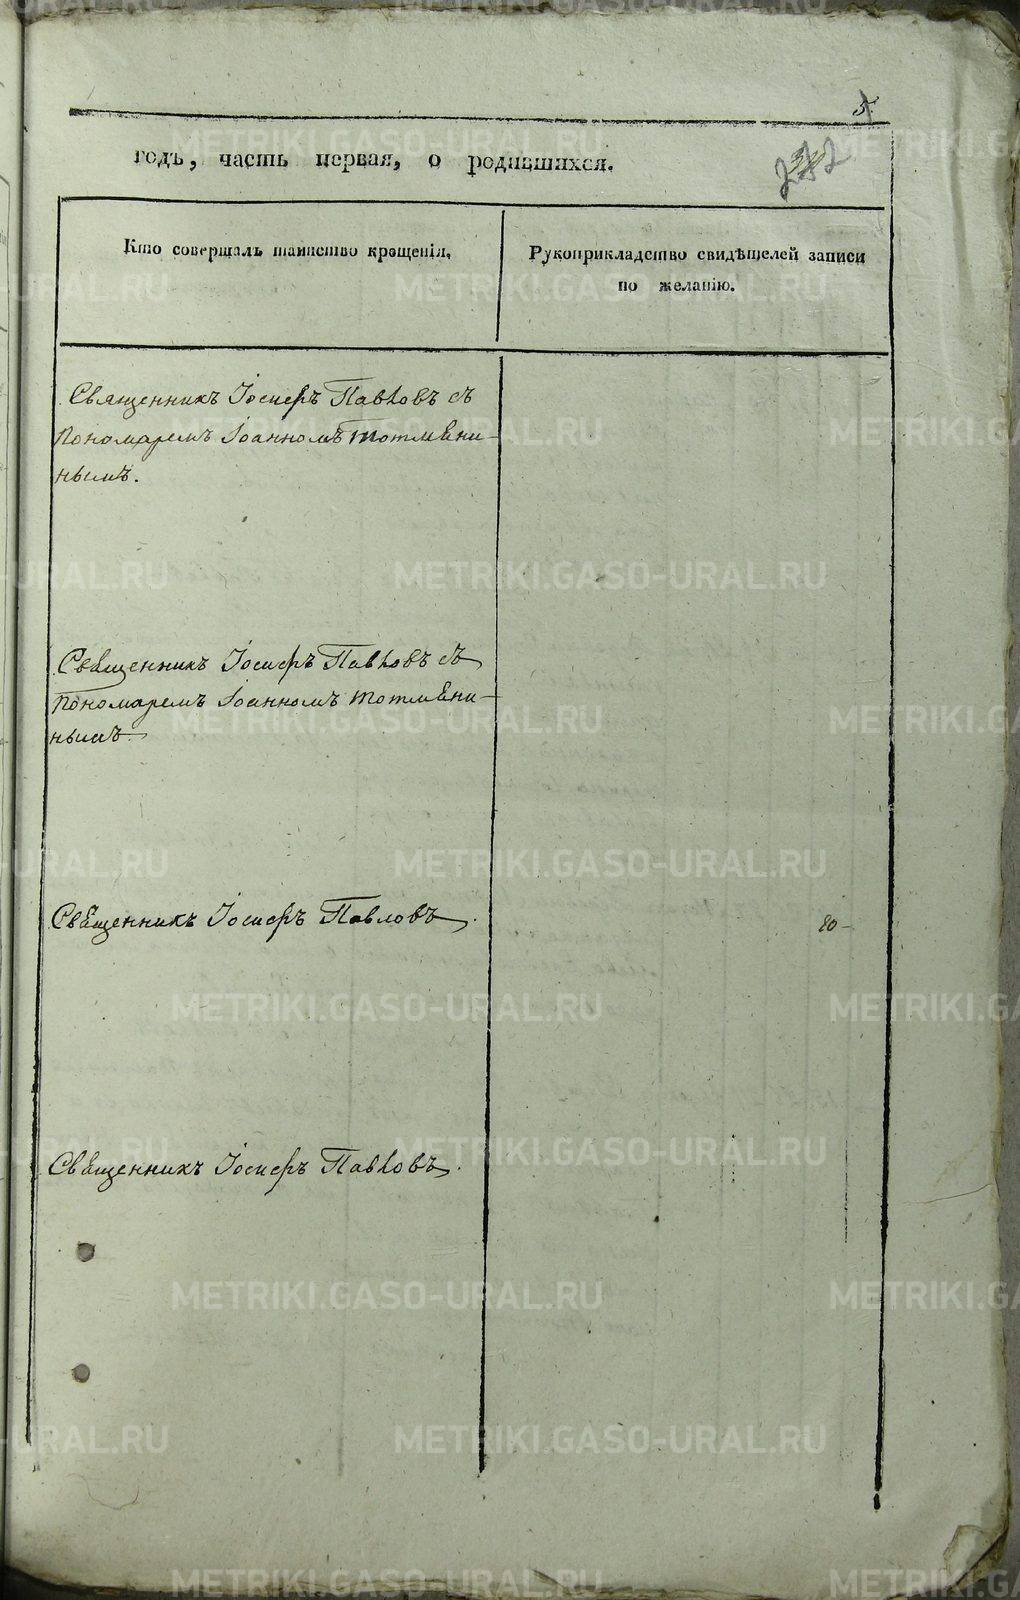 5
годъ, часть первая, о родившихся.
Кто совершалъ таинство крещенія.
Рукоприкладство свидѣтелей записи
по желанію.
Священникъ Іосифъ Павловъ съ
Пономаремъ Іоанномъ Тотмѣни-
нымъ.
Священникъ Іосифъ Павловъ съ
Пономаремъ Іоанномъ Тотмѣни-
нымъ.
Священникъ Іосифъ Павловъ.
Священникъ Іосифъ Павловъ.
METRIKI.GASO-URAL.RU